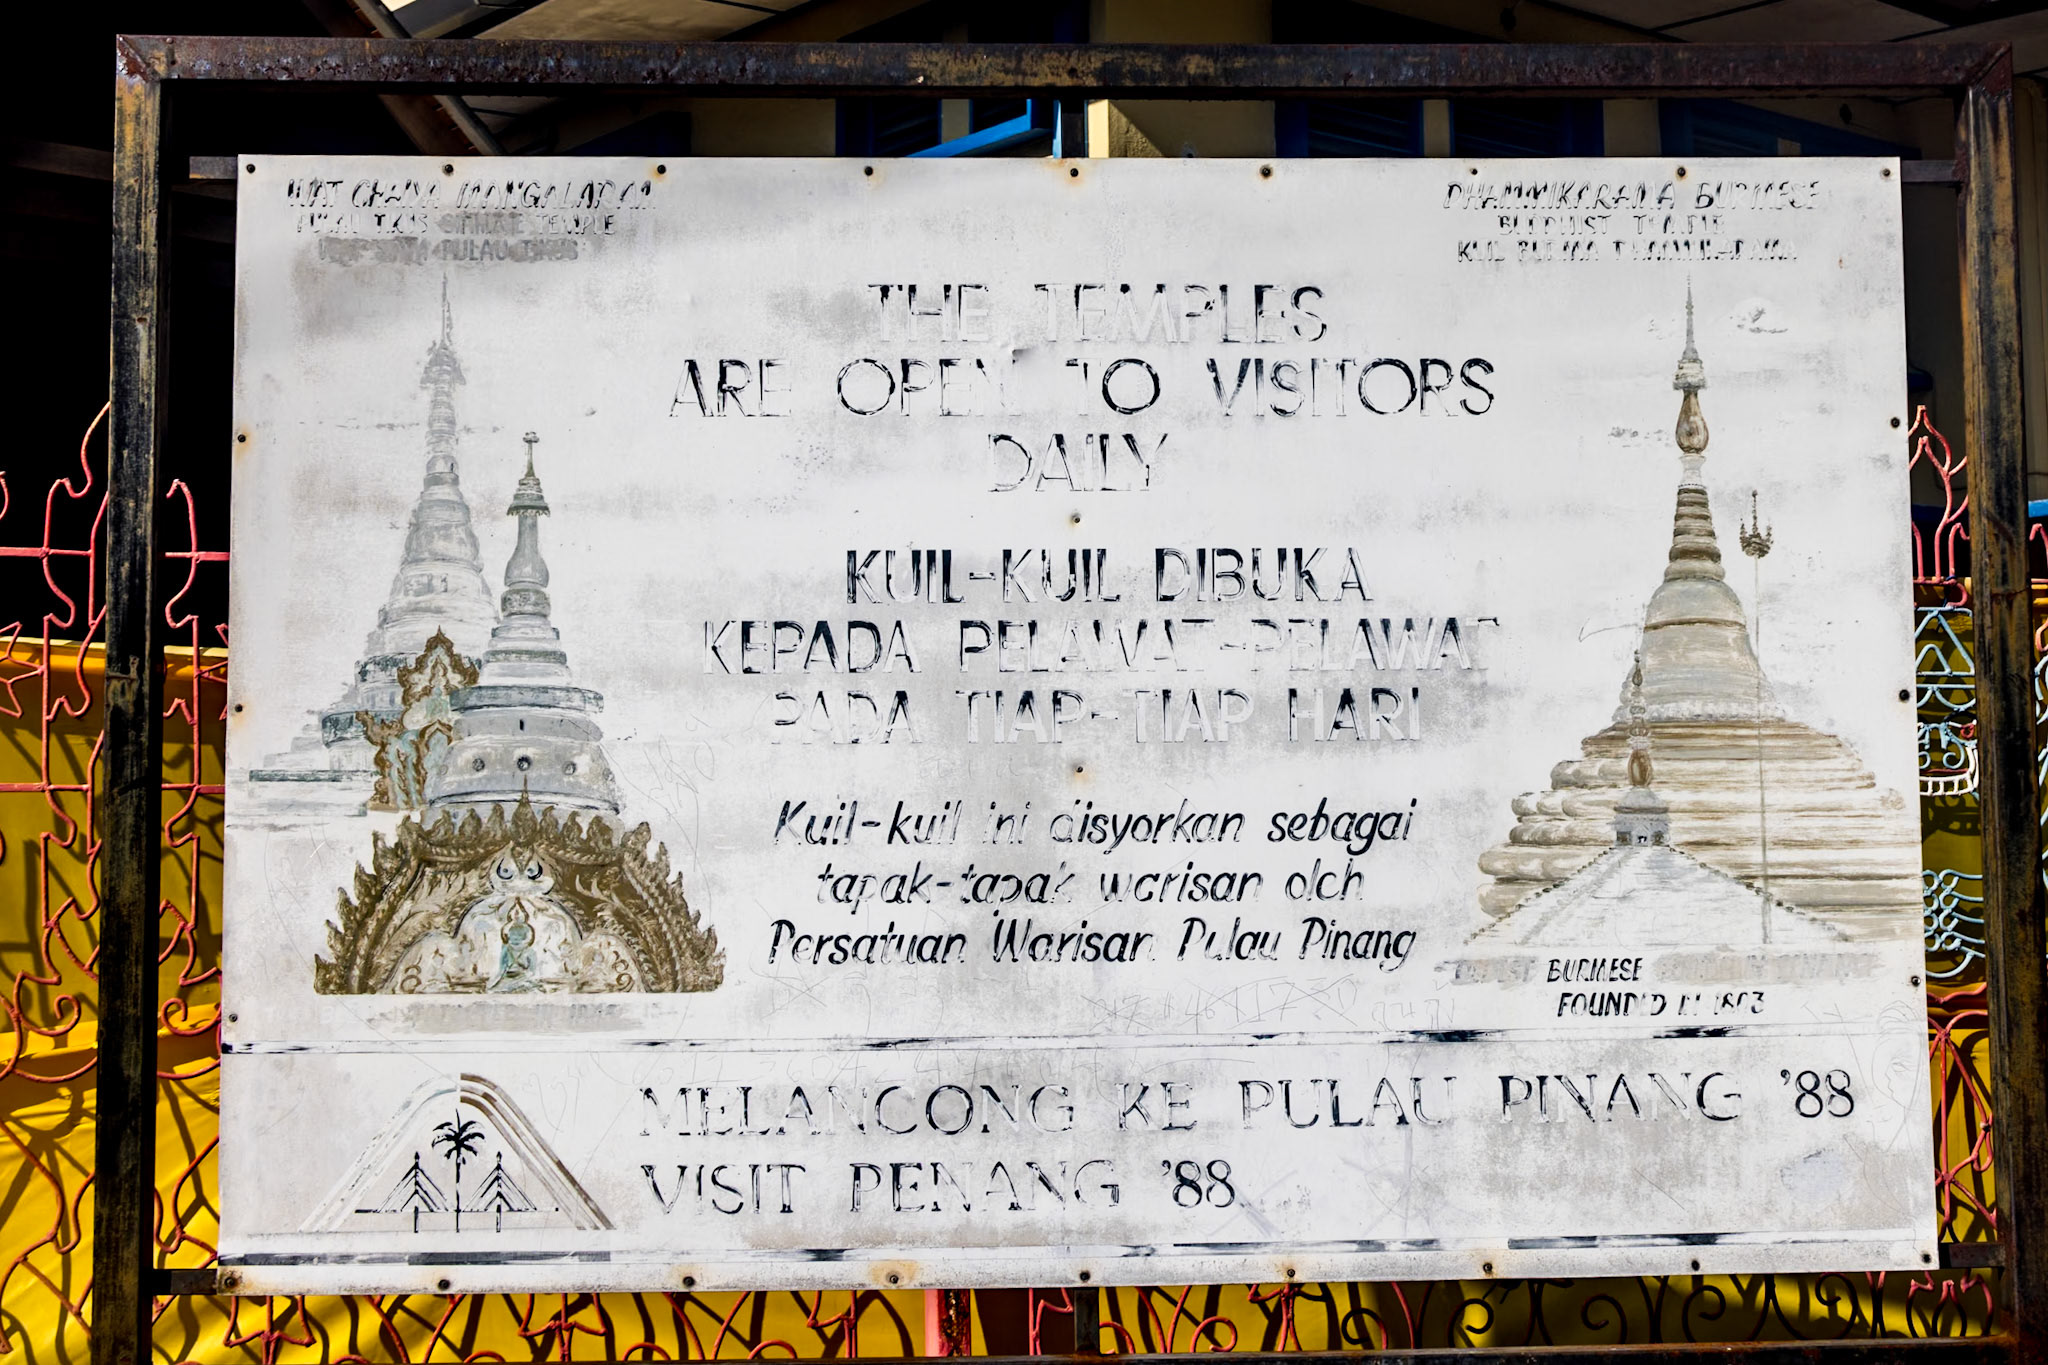 WAT CHAYA MANGALARAM
PULAU TIKUS SIAMESE TEMPLE
PULAU TIKUS
DHAMMIKARAMA BURMESE
BUDDHIST TEMPLE
KUIL BURMA DHAMMIKARAMA
THE TEMPLES
ARE OPEN TO VISITORS
DAILY
KUIL-KUIL DIBUKA
KEPADA PELAWAT-PELAWAT
PADA TIAP-TIAP HARI
Kuil-kuil ini disyorkan sebagai
tapak-tapak warisan oleh
Persatuan Warisan Pulau Pinang
BURMESE
FOUNDED IN 1803
MELANCONG KE PULAU PINANG '88
VISIT PENANG '88